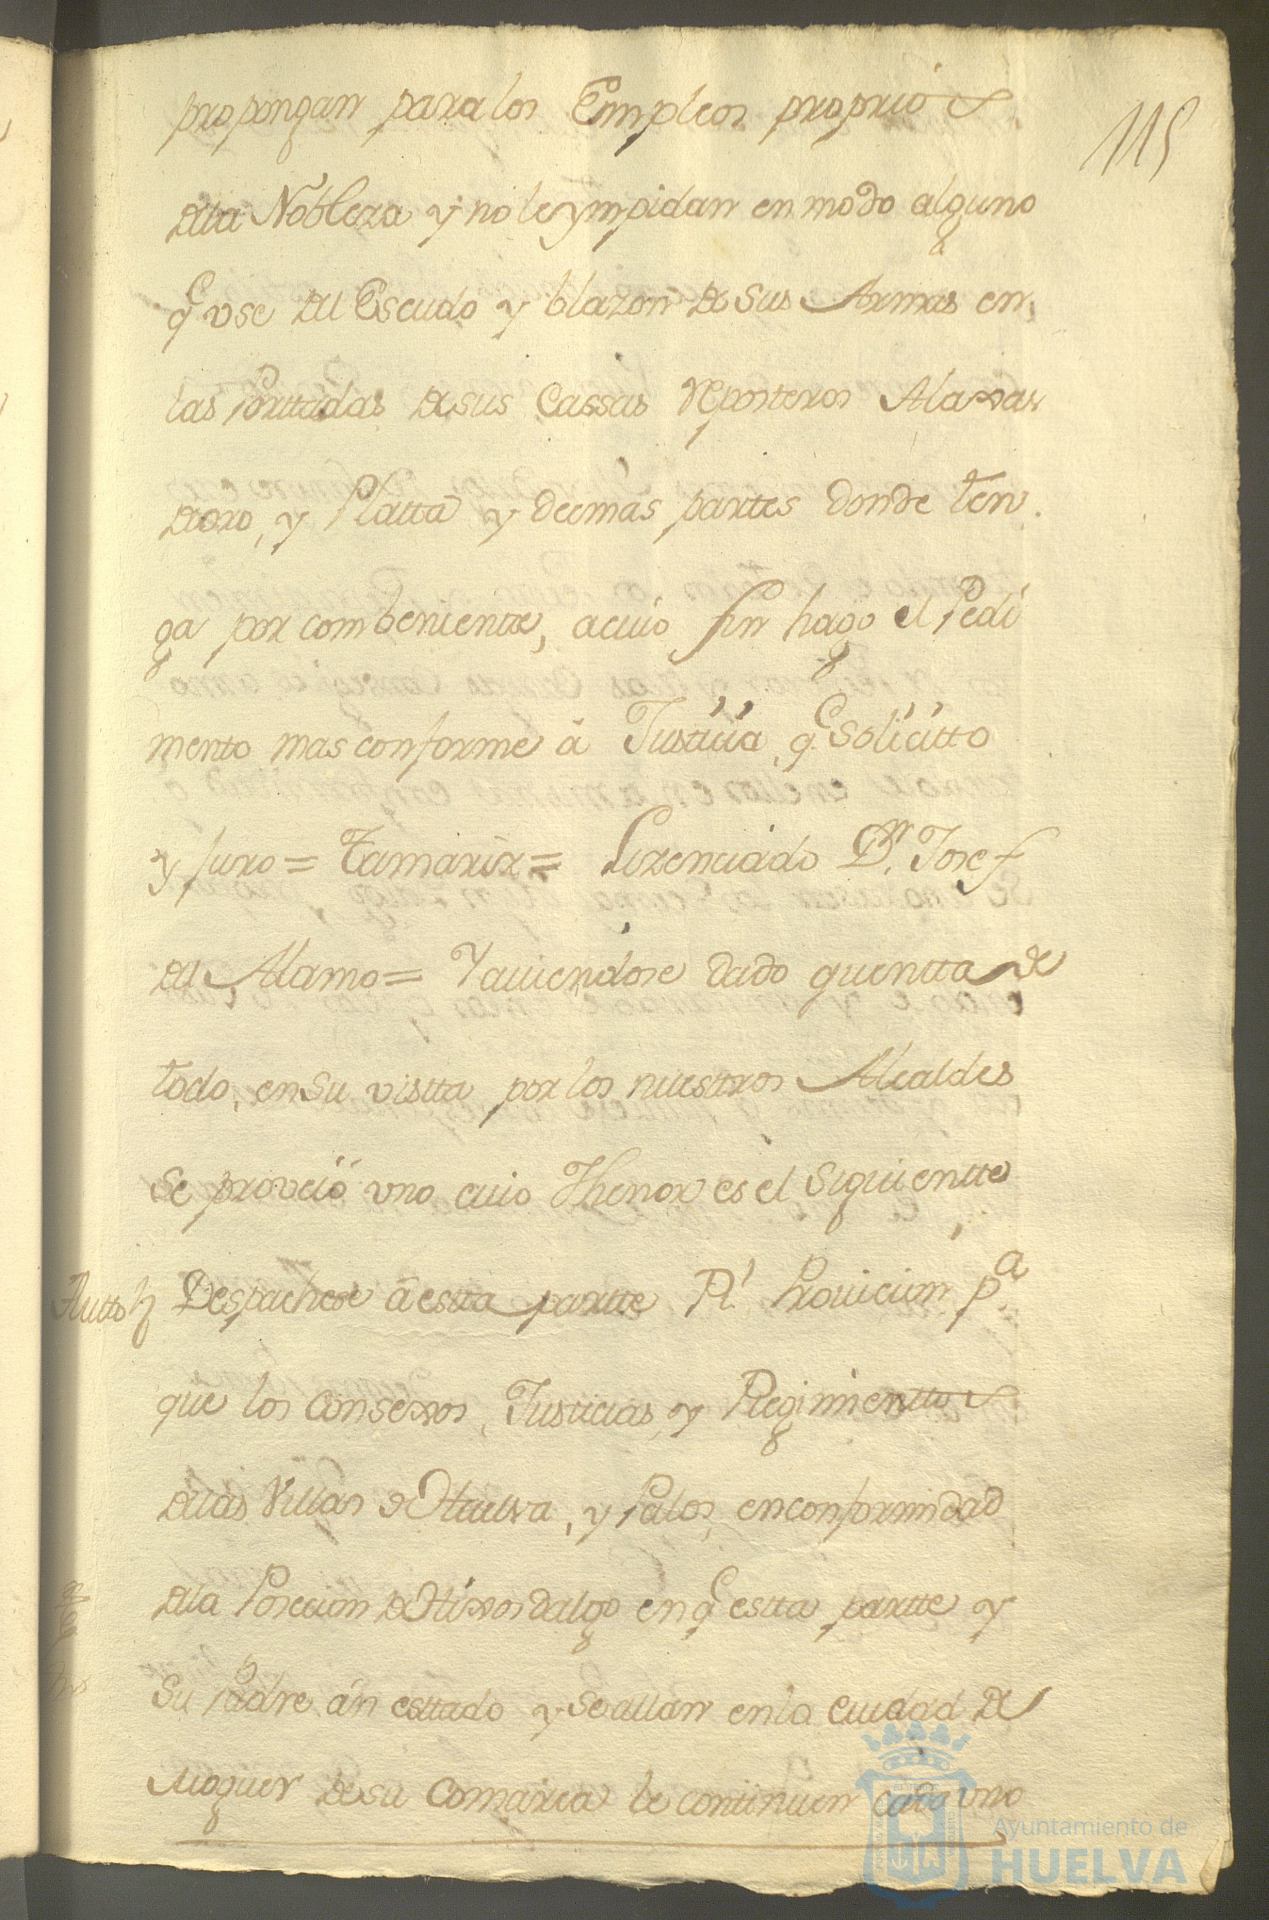 115
propongan para los Empleos proprios
dela Nobleza y no le ympidan en modo alguno
q.e vse del Escudo y blazon de sus Armas en
las Portadas de sus Cassas reposteros Alaxas
de oro, y Platta y deemas partes donde ten.
ga por combeniente, a cuio fin hago el Pedi
mento mas conforme â Justicia q.e solicitto
y Juro = Tamariz = Lizenciado D.n Josef
del Alamo = Y auiendose dado quentta de
todo, en su vistta por los nuestros Alcaldes
se proveió vno cuio Thenor es el siguientte
Autto Despachese â estta partte Rl Prouicion p.a
que los consexos, Justicias, y Regimienttos
delas Villas de Huelva, y Palos, en conformidad
dela Poseción de Hixosdalgo en q.e estta partte y
su Padre án esttado y se allan en la ciudad de
Moguer de su comarca le continuen cada vno
Ayuntamiento de
HUELVA